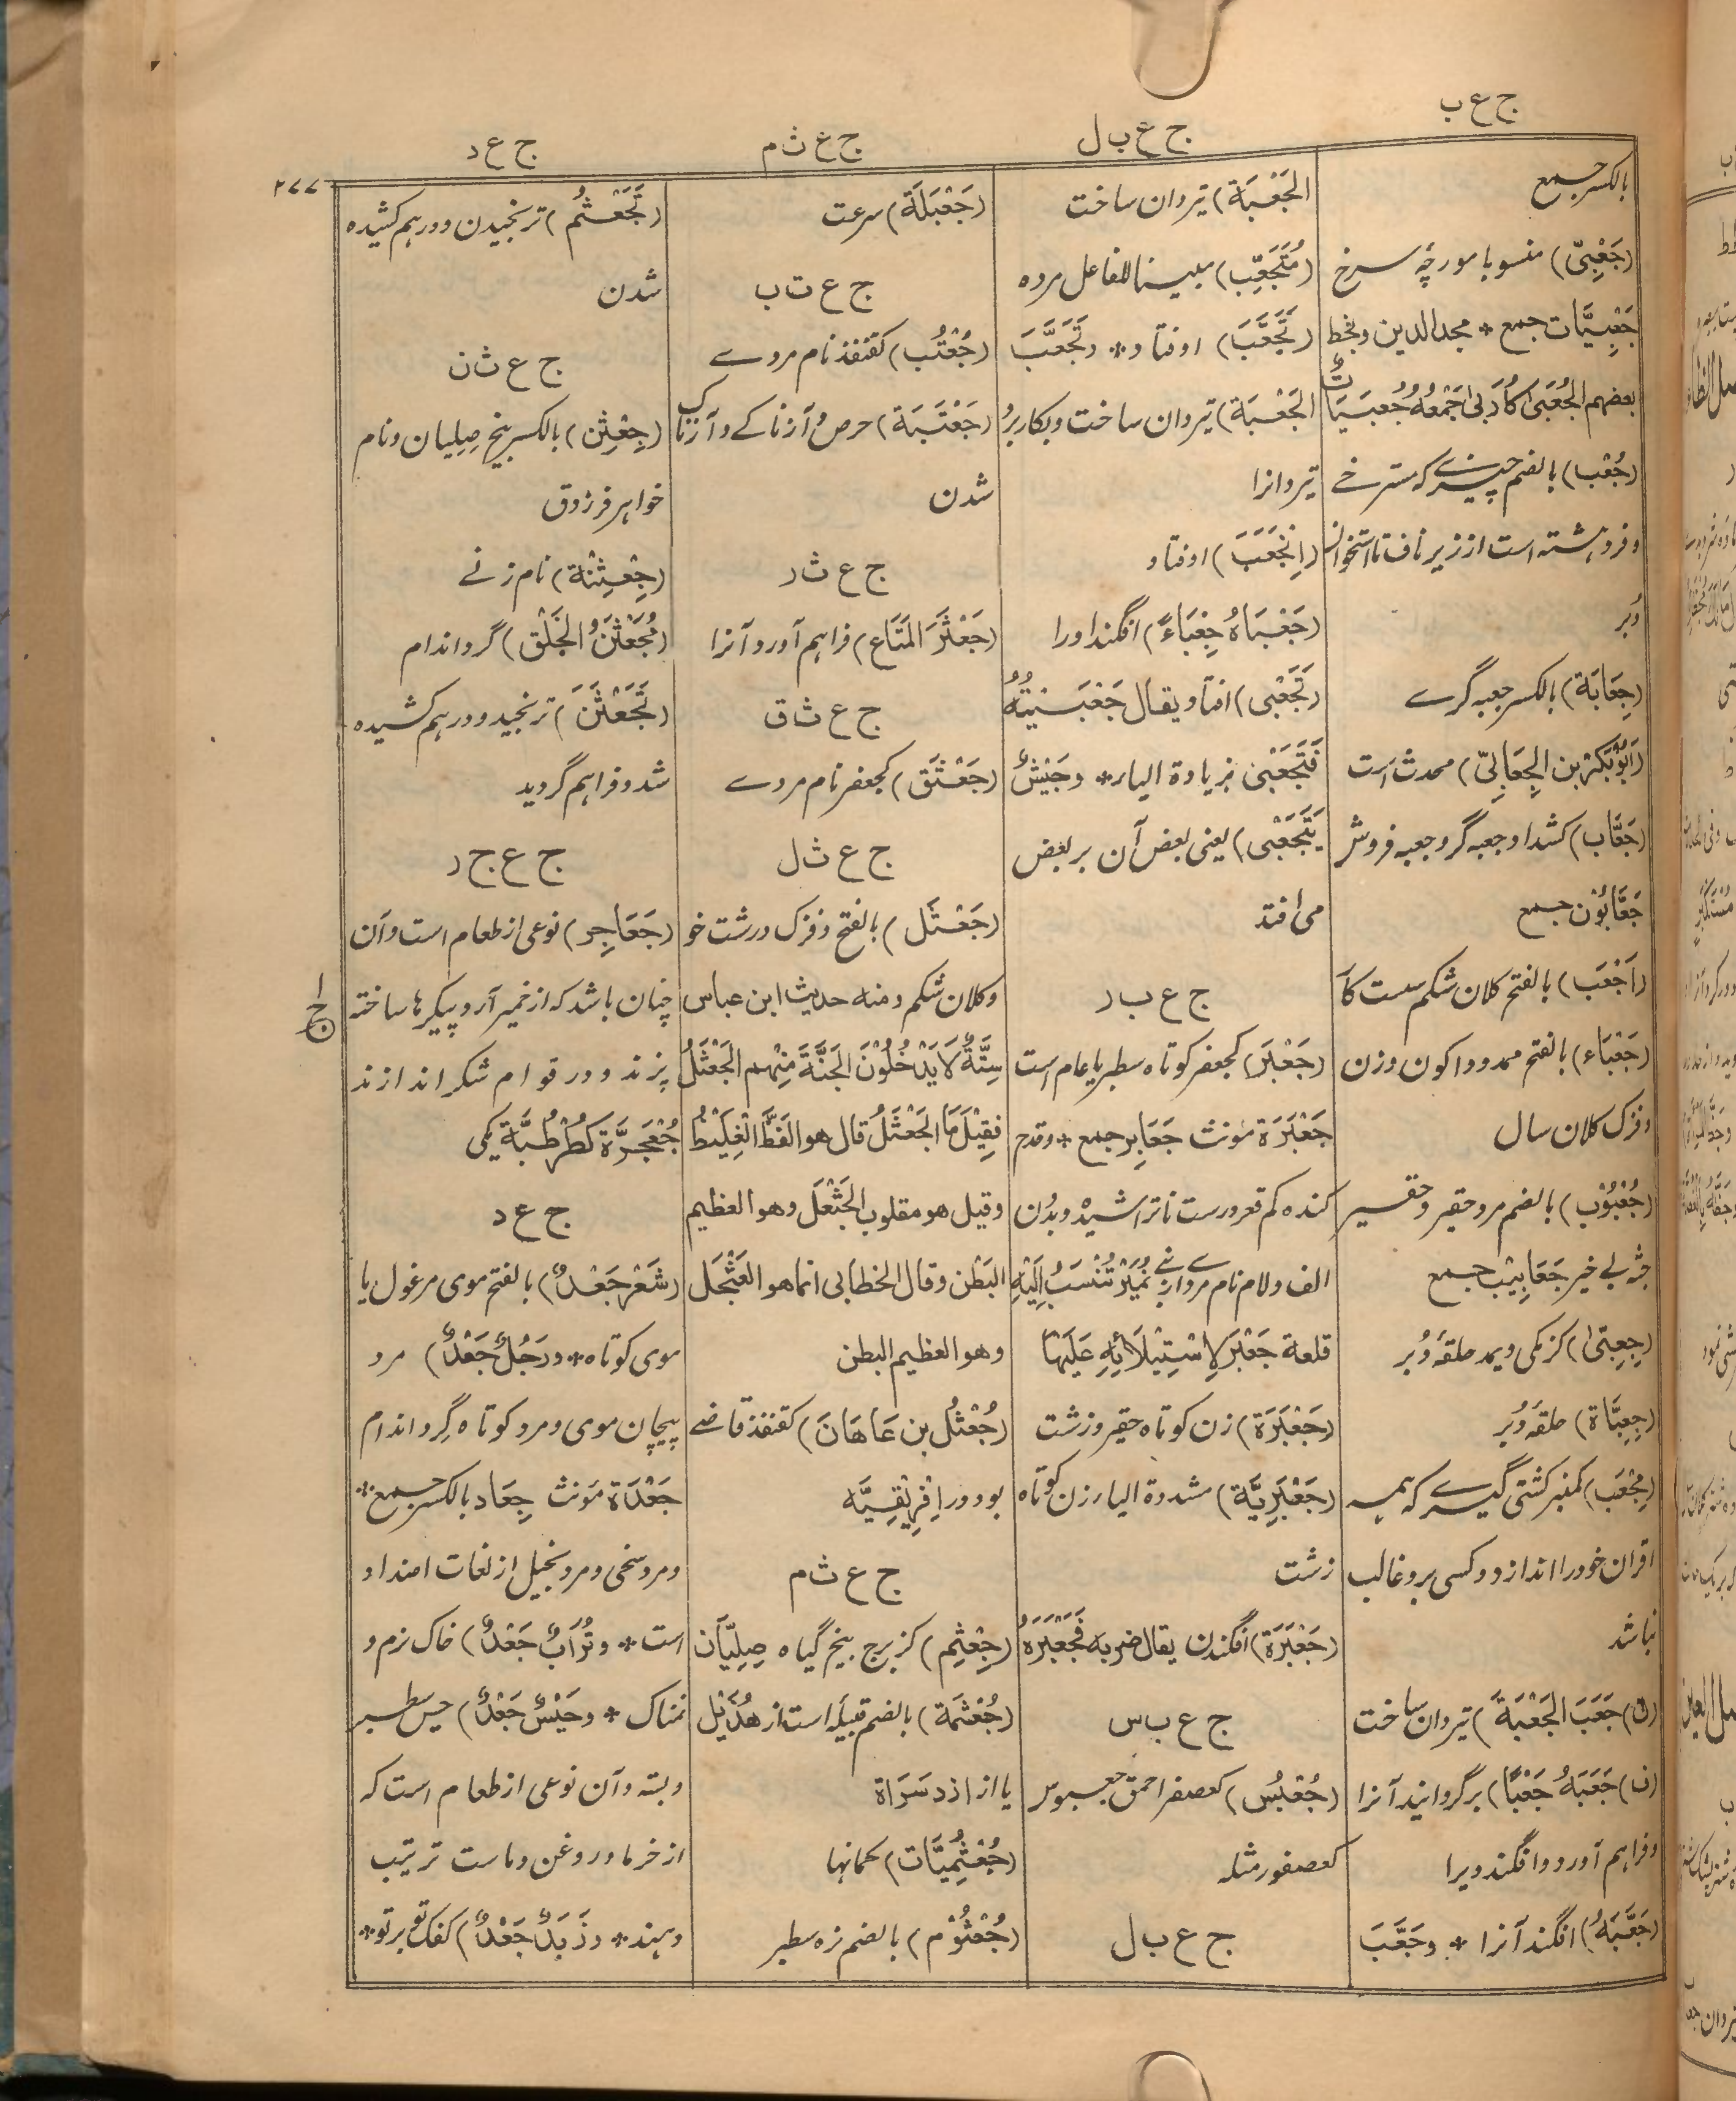 ج ع ب
ج ع ب ل
ج ع ث م
ج ع د
۲۷۷
بالکسر جمع
(جَعْبِیّ) منسوبا مورچهٔ سرخ
جَعْبِیَّات جمع * مجدالدین وبخط
بعضهم الجُعَبَىٰ كَأُرَبىٰ جَمْعُهُ جُعَبَيَاتٌ
(جُعْب) بالضم چیزیکه مسترخی
و فروهشته است از زیر ناف تا استخوان
دُبر
(جِعَابَة) بالکسر جعبه گرے
(اَبُوْبَکْر بن الجِعَابِیّ) محدث است
(جَعَّاب) کشداد جعبه گر و جعبه فروش
جَعَّابُوْن جمع
(اَجْعَب) بالفتح کلان شکم سست کار
(جَعْبَاء) بالفتح ممدودا کون و زن
وفزک کلان سال
(جُعْبُوْب) بالضم مرد حقیر و قصیر
جثه بے خیر جَعَابِیْب جمع
(جِعِبّیٰ) کزمکی ویمد حلقهٔ دُبر
(جِعِبَّاة) حلقهٔ دُبر
(مِجْعَب) کمنبر کشتی گیرے که همه
اقران خود را اندازد و کسی برو غالب
نباشد
(ف) جَعَبَ الجَعْبَةَ) تیردان ساخت
(ف) جَعَبَهُ جَعْبًا) برگردانید آنرا
وفراهم آورد و افگند ویرا
(جَعَّبَهُ) افگند آنرا * وجَعَّبَ
الجَعْبَة) تیردان ساخت
(مُتَجَعِّب) مبنیا للفاعل مرده
(تَجَعَّبَ) اوفتاد * وتَجَعَّبَ
الجَعْبَة) تیردان ساخت و بکار برد
تیردانرا
(اِنْجَعَبَ) اوفتاد
(جَعْبَاهُ جِعْبَاءً) افگند اورا
(تَجَعْبى) افتاد یقال جَعْبَيْتُهُ
فَتَجَعْبىٰ بزیادة الیاء * وجَيْشٌ
يَتَجَعْبى) یعنی بعض آن بر بعض
می افتد
ج ع ب ر
(جَعْبَر) کجعفر کوتاه سطبر یا عام است
جَعْبَرَة مونث جَعَابِر جمع * وقدح
کنده کم قعر درست ناتراشیده وبدُن
الف ولام نام مردے از بنی نُمَيْر تُنْسَبُ اِلَيْهِ
قلعة جَعْبَر لِاسْتِيْلَائِهِ عَلَيْهَا
(جَعْبَرَة) زن کوتاه حقیر و زشت
(جَعْبَرِیَّة) مشددة الیاء زن کوتاه
زشت
(جَعْبَرَة) افگندن یقال ضربه فَجَعْبَرَهُ
ج ع ب س
(جُعْبُس) کعصفر احمق جعبوس
کعصفور مثله
ج ع ب ل
(جَعْبَلَة) سرعت
ج ع ت ب
(جُعْتُب) کقنفذ نام مردے
(جَعْتَبَة) حرص و آزناکے و آزناک
شدن
ج ع ث ر
(جَعْثَرَ المَتَاع) فراهم آورد آنرا
ج ع ث ق
(جَعْثَق) کجعفر نام مردے
ج ع ث ل
(جَعْثَل) بالفتح وفزک درشت خو
وکلان شکم ومنه حدیث ابن عباس
سِتَّةٌ لَا يَدْخُلُوْنَ الجَنَّةَ مِنْهم الجَعْثَلُ
فقِيْلَ مَا الجَعْثَلُ قال هو الفَظُّ الغِلَيْظُ
وقیل هو مقلوب الجَثْعَل وهو العظیم
البَطْن وقال الخطابی انما هو العَثْجَل
وهو العظیم البطن
(جُعْثُل بن عَاهَانَ) کقنفذ قاضے
بود در اِفْرِيْقِيَّه
ج ع ث م
(جِعْثِم) کزبرج بیخ گیاه صِلِّیَان
(جُعْثَمَة) بالضم قبیله است از هُذَیْل
یا از ازد سَرَاة
(جُعْثُمِیَّات) کمانها
(جُعْثُوْم) بالضم زه سطبر
(تَجَعْثُم) ترنجیدن و درهم کشیده
شدن
ج ع ث ن
(جِعْثِن) بالکسر بیخ صلیان و نام
خواهر فرزدق
(جِعْثِنَة) نام زنے
(مُجَعْثَنُ الخَلْق) گرد اندام
(تَجَعْثَنَ) ترنجید و درهم کشیده
شد و فراهم گردید
ج ع ج ر
(جَعَاجِر) نوعی از طعام است و آن
چنان باشد که از خمیر آرد پیکرها ساخته
پزند و در قوام شکر اندازند
جُعْجَرَّة کطُرْطُبَّة یکی
ج ع د
(شَعْر جَعْدٌ) بالفتح موی مرغول یا
موی کوتاه * ورَجُلٌ جَعْدٌ) مرد
پیچان موی و مرد کوتاه گرد اندام
جَعْدَة مونث جِعَاد بالکسر جمع *
ومرد سخی و مرد بخیل از لغات اضداد
است * وتُرَابٌ جَعْدٌ) خاک نرم و
نمناک * وحَيْسٌ جَعْدٌ) حیس سطبر
وبسته و آن نوعی از طعام است که
از خرما و روغن و ماست ترتیب
دهند * وزَبَدٌ جَعْدٌ) کفک تو برتو *